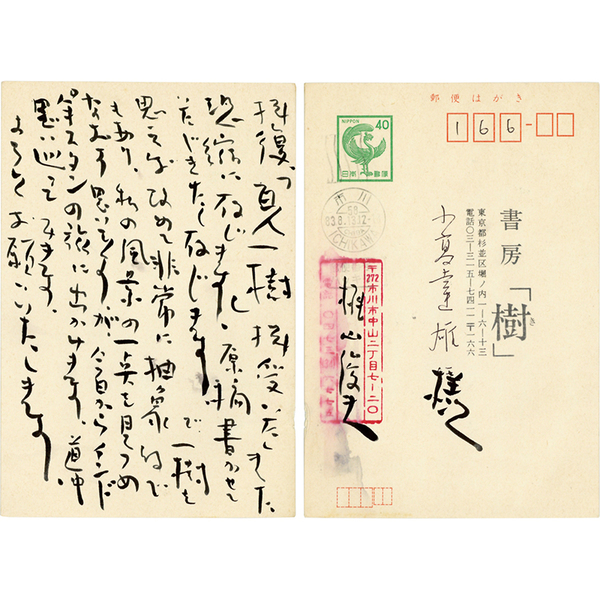 拝復 貝一樹 拝受いたしました
恐縮に存じます 原稿書かせて
いただきたく存じます で一樹を
思えばひめて非常に抽象的で
もあり、私の風景の一点を見つめ
なおす思いです。が、今日からインド
パキスタンの旅に出かけます。道中
思い巡らてみます。
よろしくお願いいたします。
郵便はがき
166-
NIPPON
40
日本郵便
市川
ICHIKAWA
東京都杉並区堀ノ内一-六-十三
電話〇三-三一五-七四一一 〒一六六
書房「樹」
き
小高達雄 様
〒272 市川市中山二丁目七-二〇